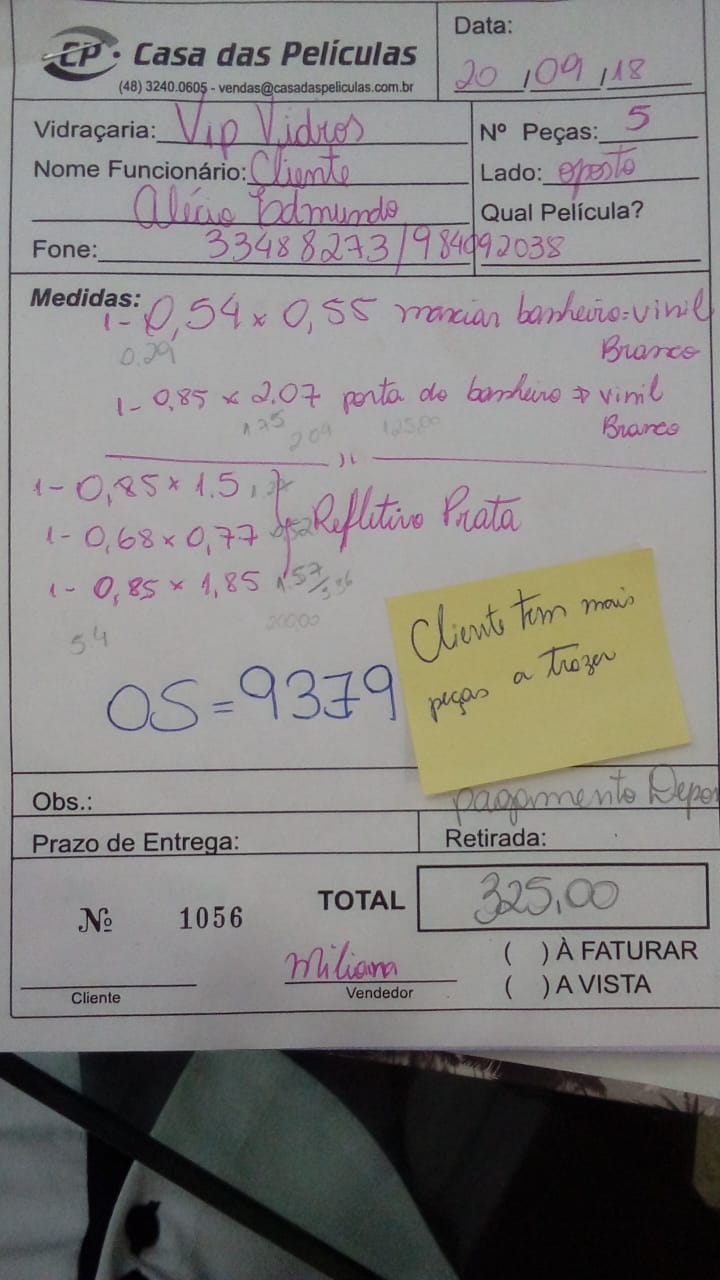 CP · Casa das Películas
(48) 3240.0605 - vendas@casadaspeliculas.com.br
Data:
20 / 09 / 18
Vidraçaria: Vip Vidros
Nº Peças: 5
Nome Funcionário: Cliente
Lado: oposto
Alécio Edmundo
Qual Película?
Fone: 33488273 / 984092038
Medidas:
1 - 0,54 x 0,55 banheiro = vinil
Branco
0.29
1 - 0,85 x 2,07 porta do banheiro → vinil
Branco
1.75
2.04
125,00
1 - 0,85 x 1.5
1 - 0,68 x 0,77 Refletivo Prata
1 - 0,85 x 1,85 1.57
200,00
54
OS = 9379
Cliente tem mais
peças a trazer
Obs.: pagamento Depos
Prazo de Entrega:
Retirada:
Nº 1056
TOTAL 325,00
Miliana
Cliente
Vendedor
( ) À FATURAR
( ) A VISTA